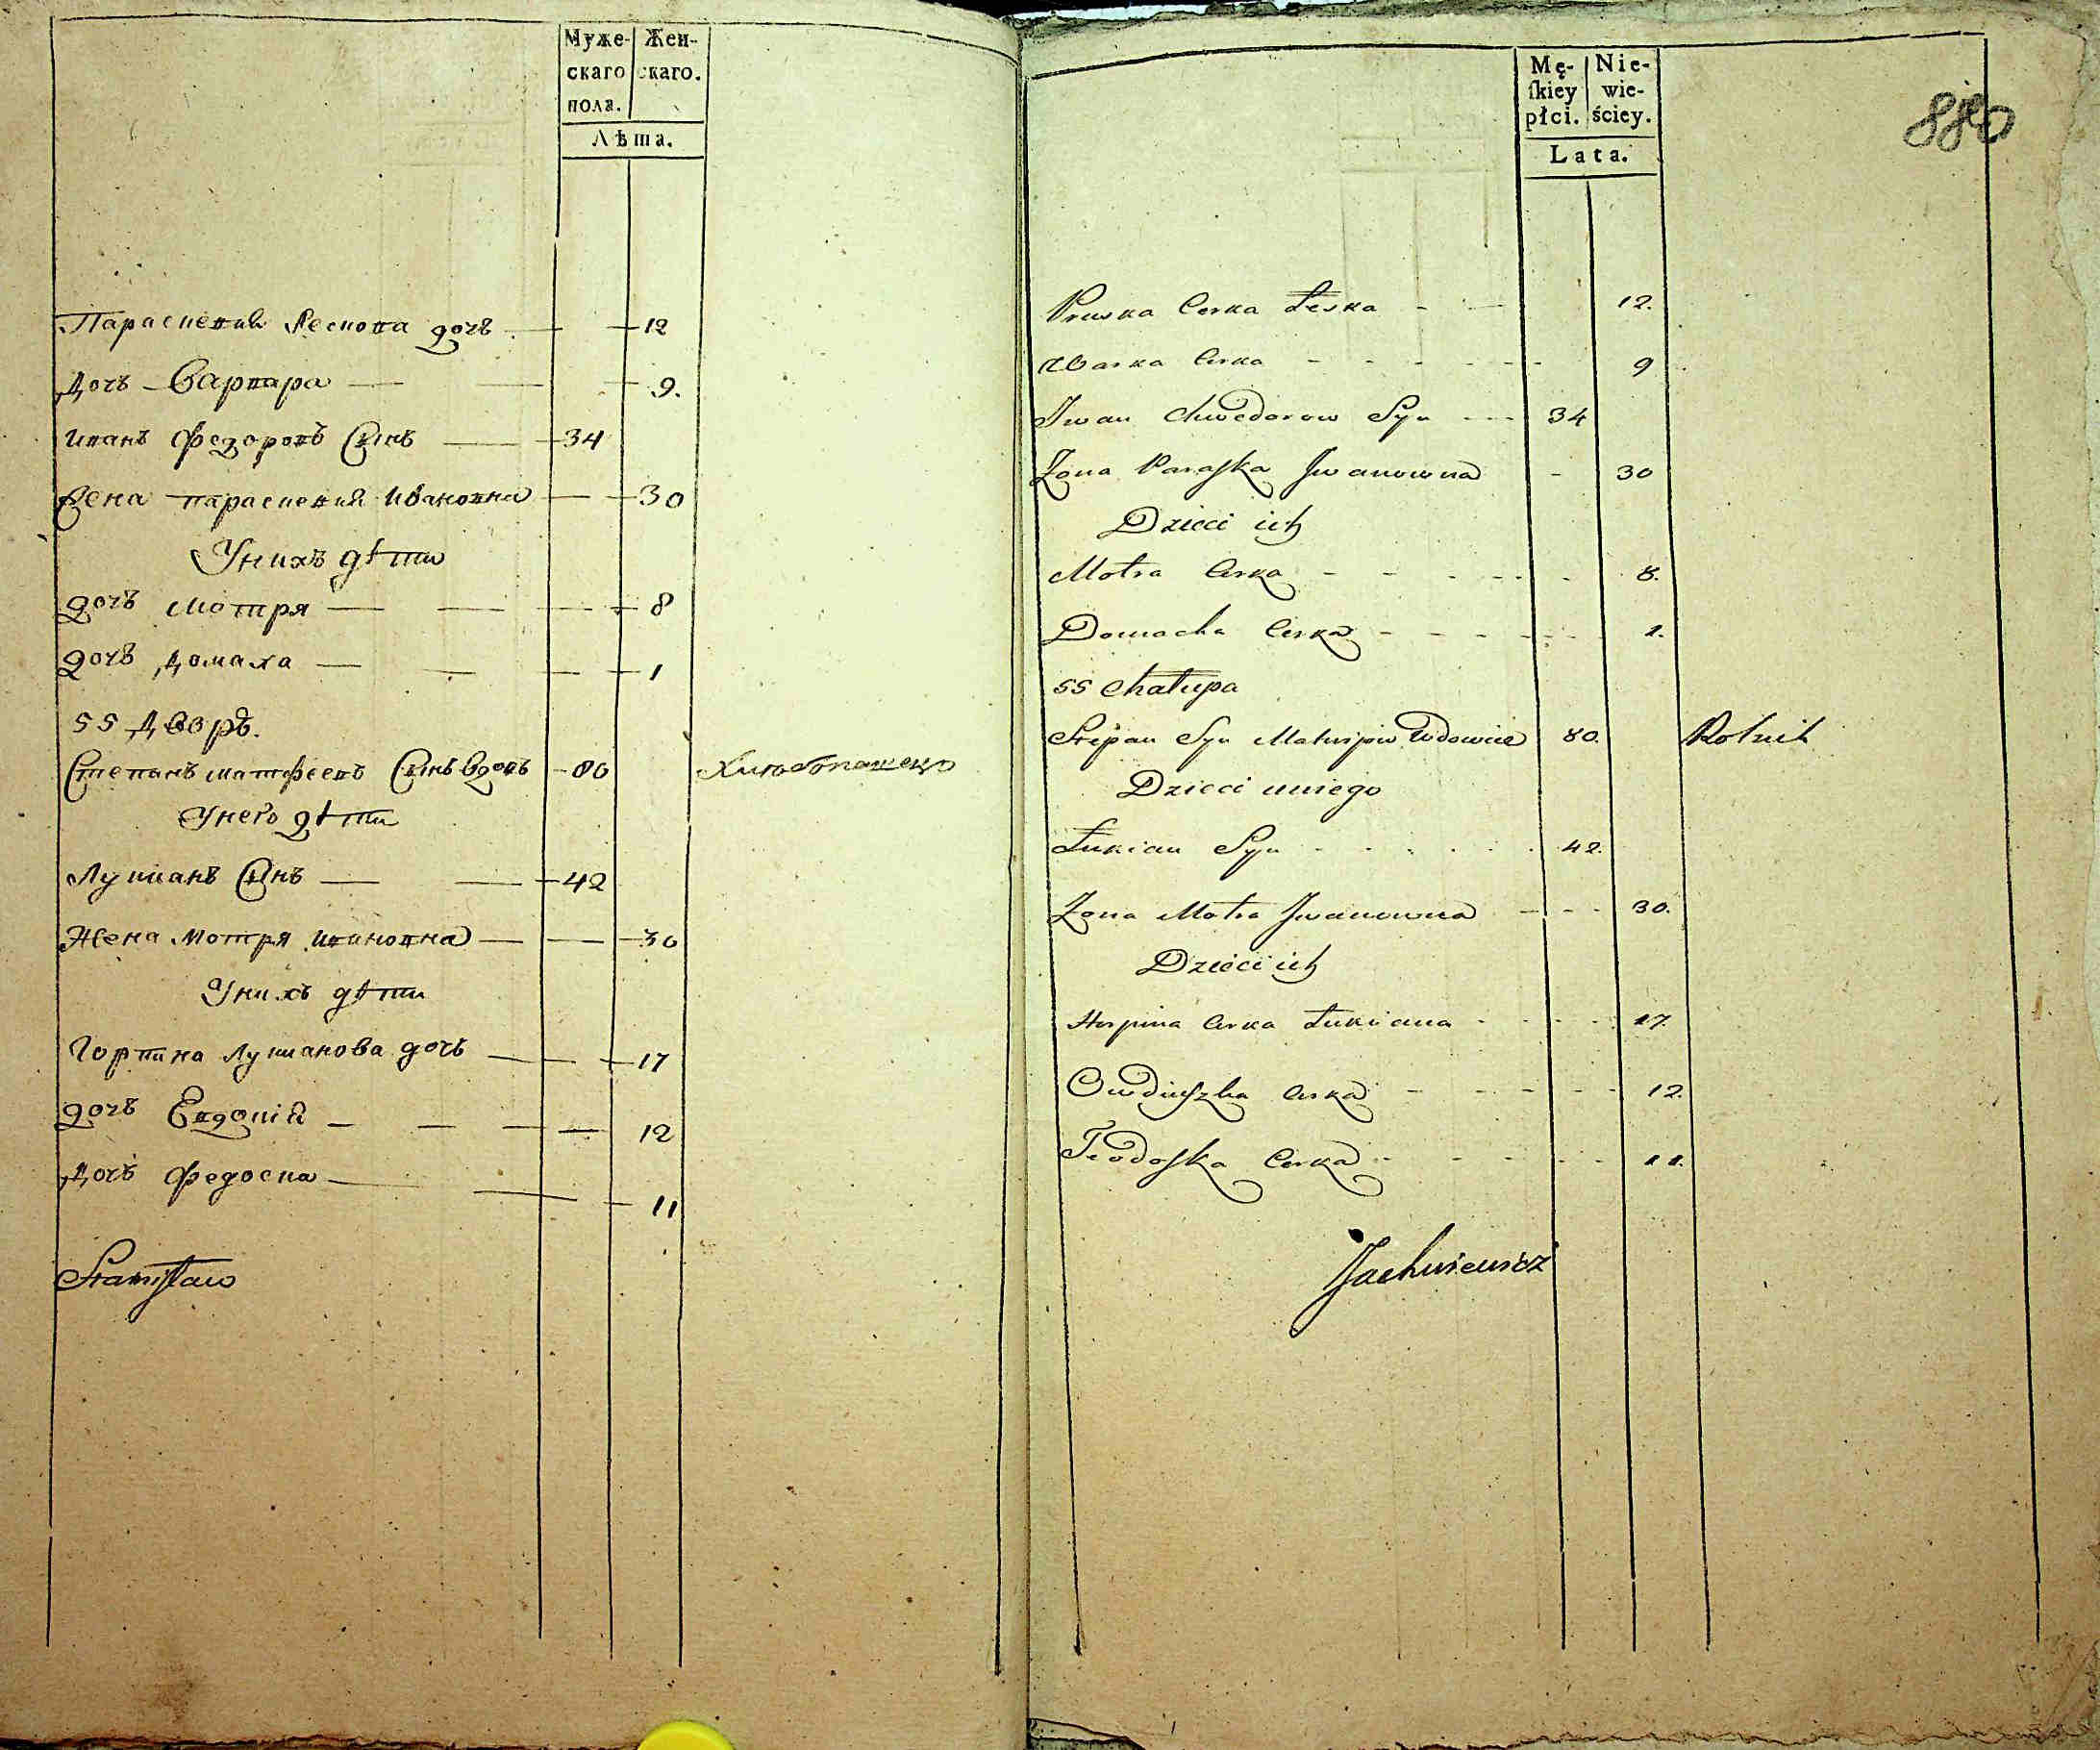 Муже- Жен-
скаго скаго.
пола.
Лѣта.
Параскевия Лескова дочь 12
Дочь Варвара 9.
Иванъ Федоровъ Сынъ 34
Жена параскевия Ивановна 30
У нихъ дѣти
дочь Мотря 8
дочь Домаха 1
55 Дворъ.
Степанъ матфеевъ Сынъ вдовъ 80 Хлебопашецъ
У него дѣти
Лукианъ Сынъ 42
Жена Мотря Ивановна 30
У нихъ дѣти
Горпина Лукианова дочь 17
дочь Евдокія 12
Дочь Федоска 11
Stanisław
Mę- Nie-
ſkiey wie-
płci. ściey.
Lata.
880
Pruska Corka Łeska 12.
Warka Corka 9
Jwan Chwedorow Syn 34
Zona Paraſka Jwanowna 30
Dzieci ich
Motra Corka 8.
Domacha Corka 1.
55 Chałupa
Stepan Syn Matwijow Wdowiec 80. Rolnik
Dzieci uniego
Łukian Syn 42.
Zona Motra Jwanowna 30.
Dzieci ich
Horpina Corka Łukiana 17.
Owdiuſzka Corka 12.
Teodoſka Corka 11.
Jachwicewicz